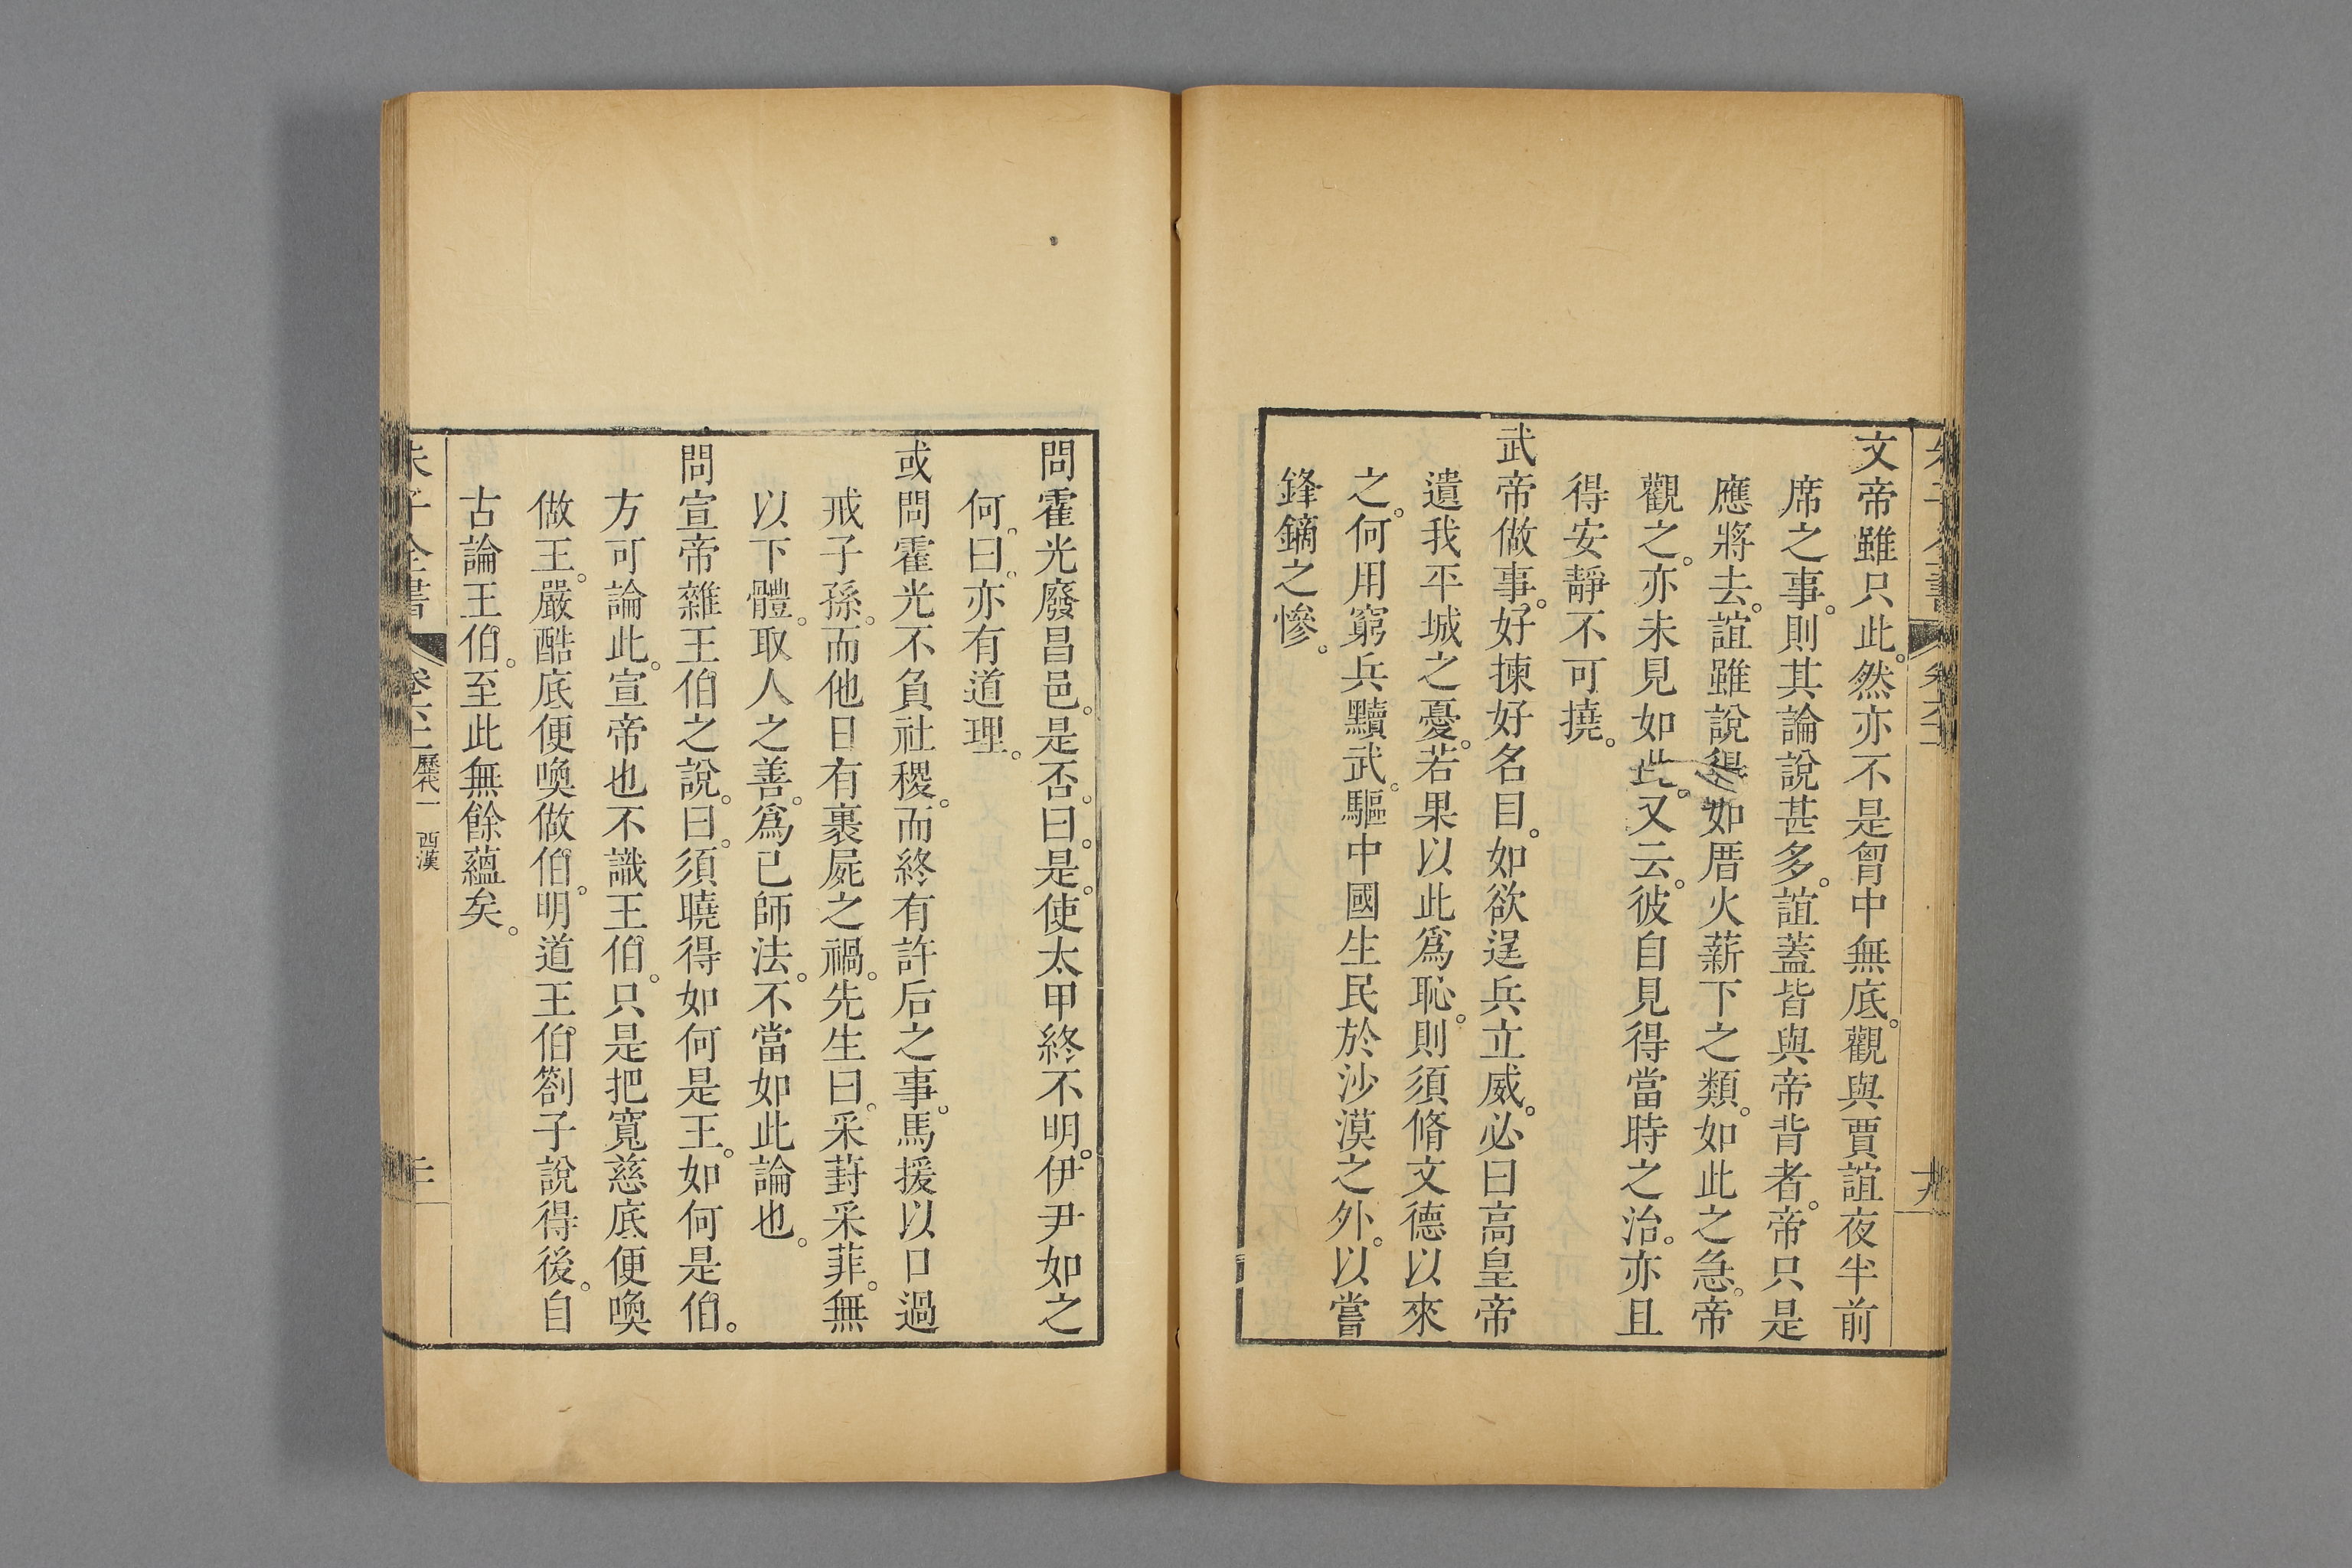 文帝雖只此。然亦不是胷中無底。觀與賈誼夜半前
席之事。則其論說甚多。誼蓋皆與帝背者。帝只是
應將去。誼雖說得如厝火薪下之類。如此之急。帝
觀之。亦未見如此。又云。彼自見得當時之治。亦且
得安靜不可撓。
武帝做事。好揀好名目。如欲逞兵立威。必曰高皇帝
遺我平城之憂。若果以此爲恥。則須脩文德以來
之。何用窮兵黷武。驅中國生民於沙漠之外。以嘗
鋒鏑之慘。
問霍光廢昌邑。是否。曰。是。使太甲終不明。伊尹如之
何。曰。亦有道理。
或問霍光不負社稷。而終有許后之事。馬援以口過
戒子孫。而他日有裹屍之禍。先生曰。采葑采菲。無
以下體。取人之善。爲已師法。不當如此論也。
問宣帝雜王伯之說。曰。須曉得如何是王。如何是伯。
方可論此。宣帝也不識王伯。只是把寬慈底便喚
做王。嚴酷底便喚做伯。明道王伯劄子說得後。自
古論王伯。至此無餘蘊矣。
朱子全書
歷代一 西漢